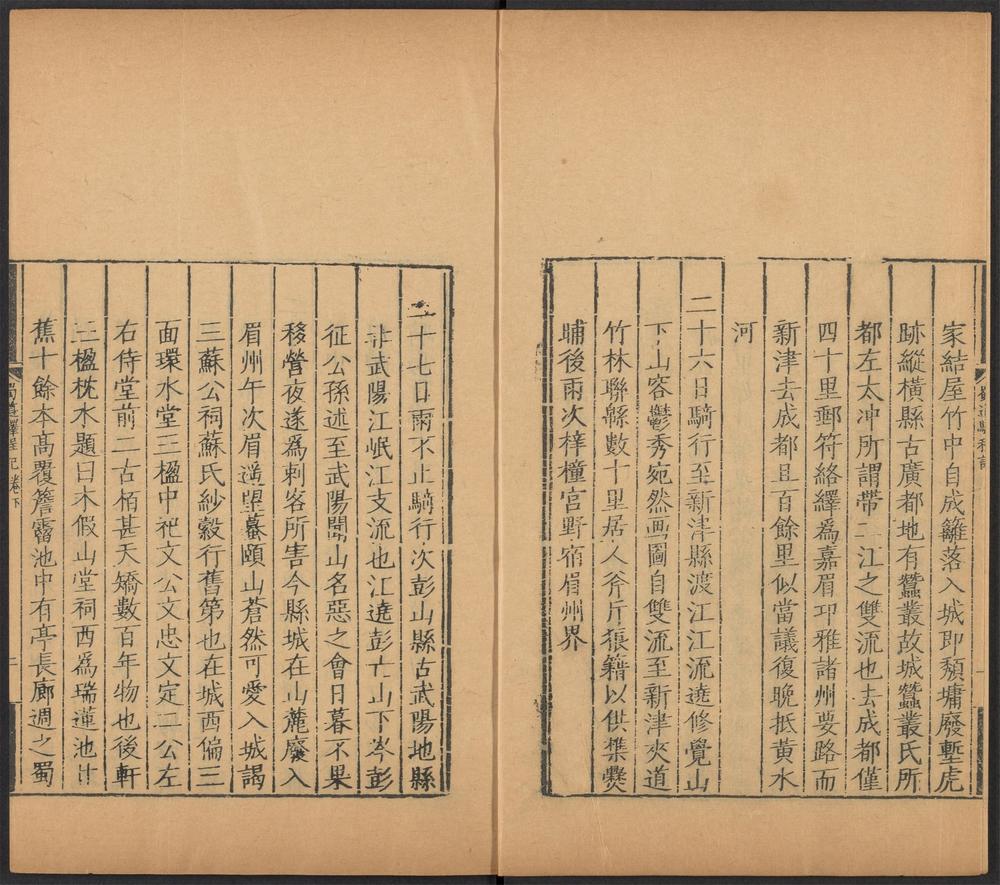 家結屋竹中自成籬落入城即頽墉廢塹虎
跡縱橫縣古廣都地有蠶叢故城蠶叢氏所
都左太冲所謂帶二江之雙流也去成都僅
四十里郵符絡繹爲嘉眉邛雅諸州要路而
新津去成都且百餘里似當議復晚抵黃水
河
二十六日騎行至新津縣渡江江流遶修覺山
下山容鬱秀宛然画圖自雙流至新津夾道
竹林聯緜數十里居人斧斤狼籍以供樵爨
晡後雨次梓橦宮野宿眉州界
二十七日雨不止騎行次彭山縣古武陽地縣
非武陽江岷江支流也江遶彭亡山下岑彭
征公孫述至武陽聞山名惡之會日暮不果
移營夜遂爲刺客所害今縣城在山麓廢入
眉州午次眉遥望蟇頤山蒼然可愛入城謁
三蘇公祠蘇氏紗縠行舊第也在城西偏三
面環水堂三楹中祀文公文忠文定二公左
右侍堂前二古栢甚夭矯數百年物也後軒
三楹枕水題曰木假山堂祠西爲瑞蓮池廿
蕉十餘本髙覆簷霤池中有亭長廊週之蜀
蜀道驛程記 卷下
二